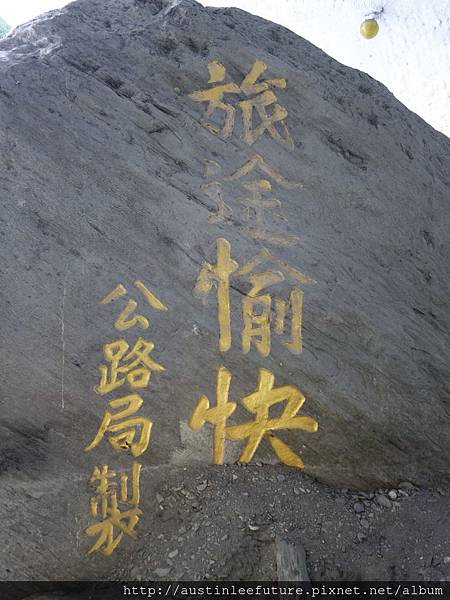 旅途愉快
公路局製
http://austinlee0future.pixnet.net/album